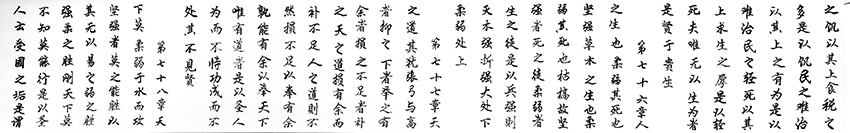 之饥以其上食税之
多是以饥民之难治
以其上之有为是以
难治民之轻死以其
上求生之厚是以轻
死夫唯无以生为者
是贤于贵生
第七十六章人
之生也柔弱其死也
坚强草木之生也柔
弱其死也枯槁故坚
强者死之徒柔弱者
生之徒是以兵强则
灭木强折强大处下
柔弱处上
第七十七章天
之道其犹张弓与高
者抑之下者举之有
余者损之不足者补
之天之道损有余而
补不足人之道则不
然损不足以奉有余
孰能有余以奉天下
唯有道者是以圣人
为而不恃功成而不
处其不见贤
第七十八章天
下莫柔弱于水而攻
坚强者莫之能胜以
其无以易之弱之胜
强柔之胜刚天下莫
不知莫能行是以圣
人云受國之垢是谓